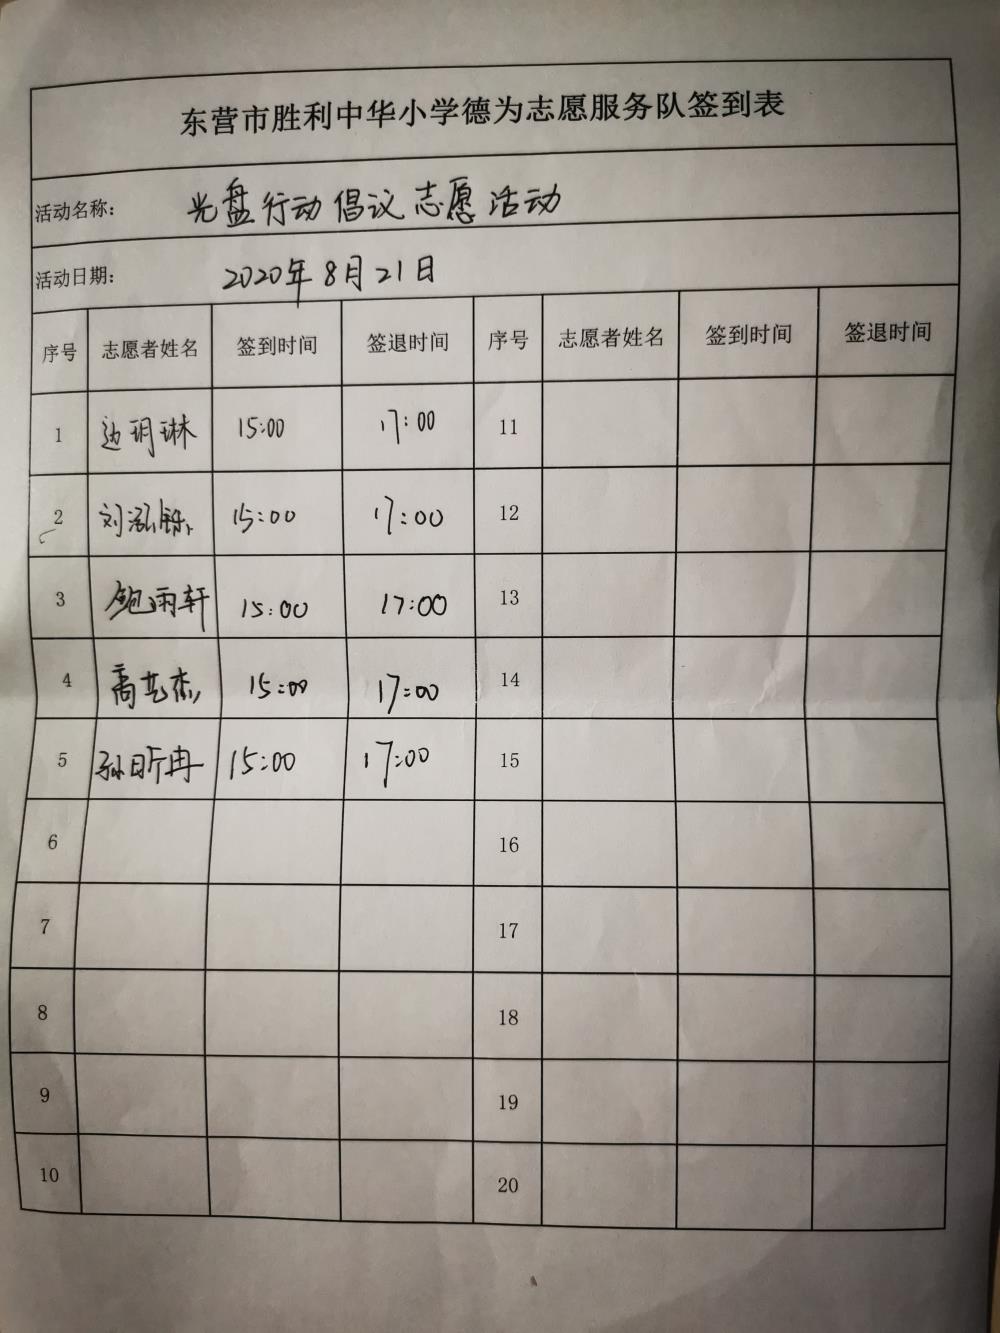 东营市胜利中华小学德为志愿服务队签到表
活动名称: 光盘行动倡议志愿活动
活动日期: 2020年8月21日
序号 志愿者姓名 签到时间 签退时间 序号 志愿者姓名 签到时间 签退时间
1 边玥琳 15:00 17:00 11
2 刘泓铄 15:00 17:00 12
3 鲍雨轩 15:00 17:00 13
4 艺杰 15:00 17:00 14
5 孙昕冉 15:00 17:00 15
6 16
7 17
8 18
9 19
10 20